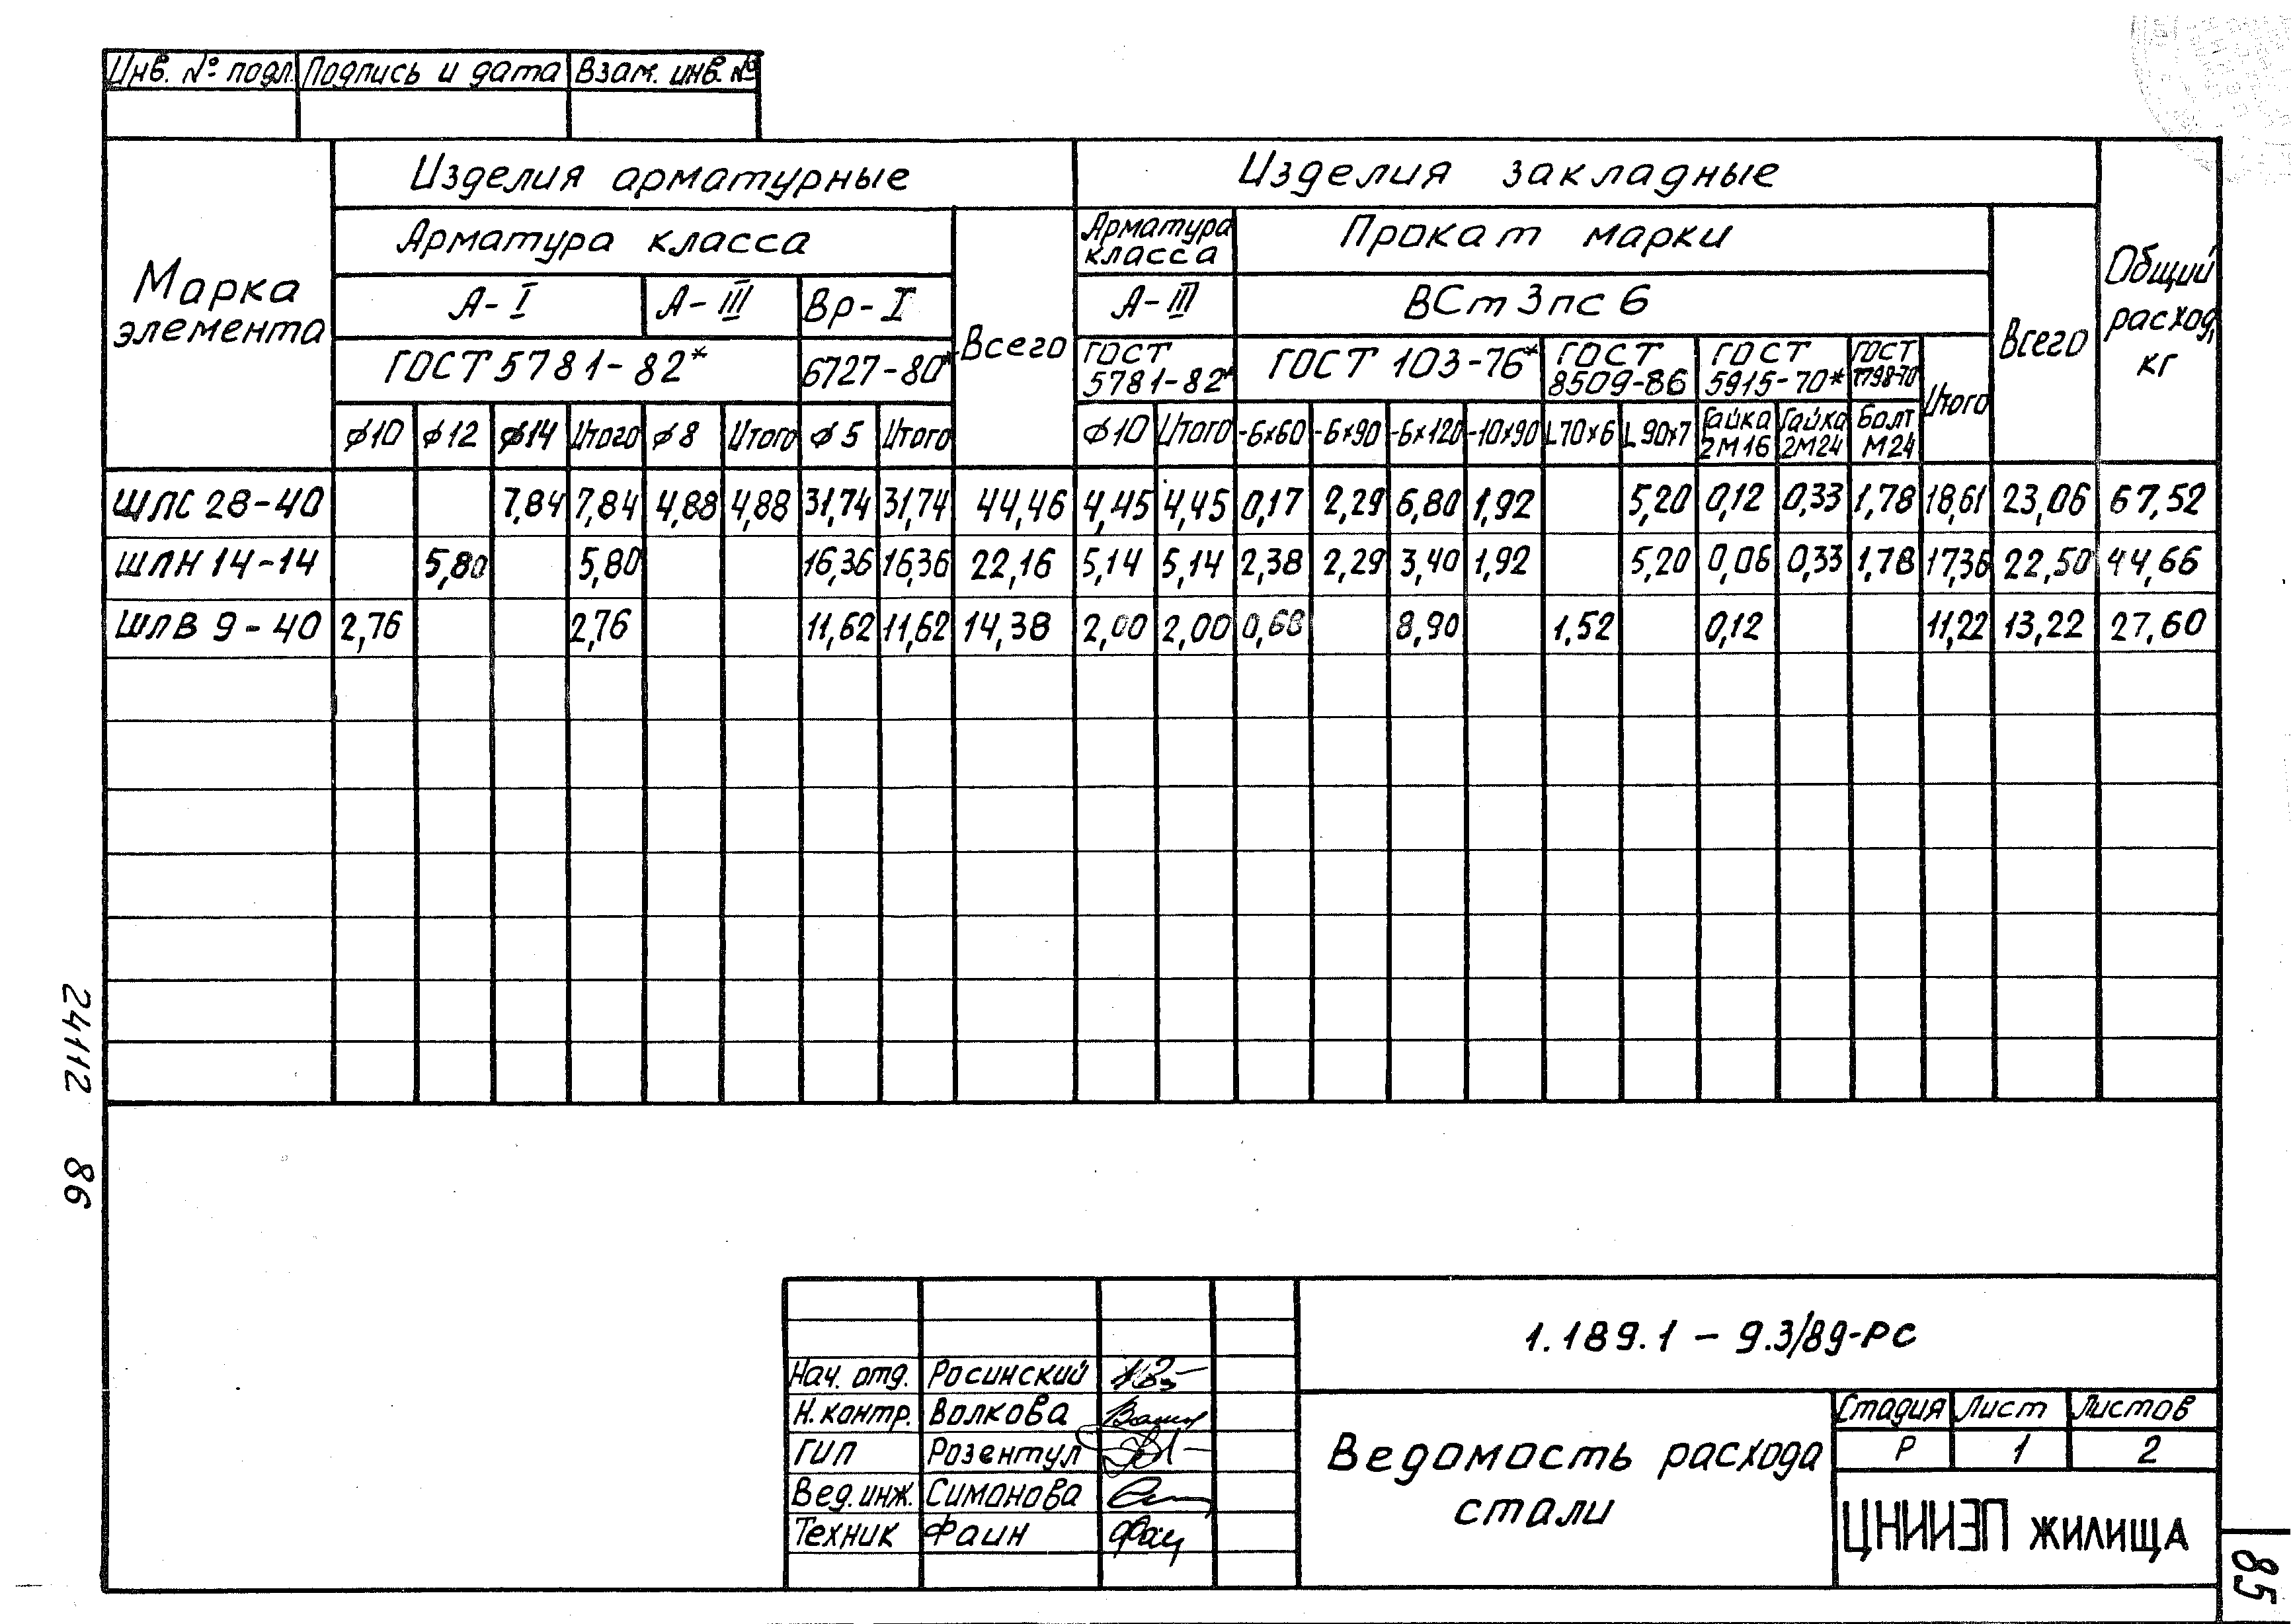 Инв. № подл. Подпись и дата Взам. инв. №
Марка элемента
Изделия арматурные
Изделия закладные
Общий расход, кг
Арматура класса
Всего
Арматура класса
Прокат марки
Всего
А-I А-III Вр-I А-III ВСт3пс6
ГОСТ 5781-82* 6727-80* ГОСТ 5781-82* ГОСТ 103-76* ГОСТ 8509-86 ГОСТ 5915-70* ГОСТ 7798-70 Итого
ф10 ф12 ф14 Итого ф8 Итого ф5 Итого ф10 Итого -6×60 -6×90 -6×120 -10×90 L70×6 L90×7 Гайка 2М16 Гайка 2М24 Болт М24
ШЛС 28-40 7,84 7,84 4,88 4,88 31,74 31,74 44,46 4,45 4,45 0,17 2,29 6,80 1,92 5,20 0,12 0,33 1,78 18,61 23,06 67,52
ШЛН 14-14 5,80 5,80 16,36 16,36 22,16 5,14 5,14 2,38 2,29 3,40 1,92 5,20 0,06 0,33 1,78 17,36 22,50 44,66
ШЛВ 9-40 2,76 2,76 11,62 11,62 14,38 2,00 2,00 0,68 8,90 1,52 0,12 11,22 13,22 27,60
24112 86
1.189.1 - 9.3/89-РС
Нач. отд. Росинский
Н. контр. Волкова
ГИП Розентул
Вед. инж. Симонова
Техник Фаин
Ведомость расхода
стали
Стадия Лист Листов
Р 1 2
ЦНИИЭП ЖИЛИЩА
85